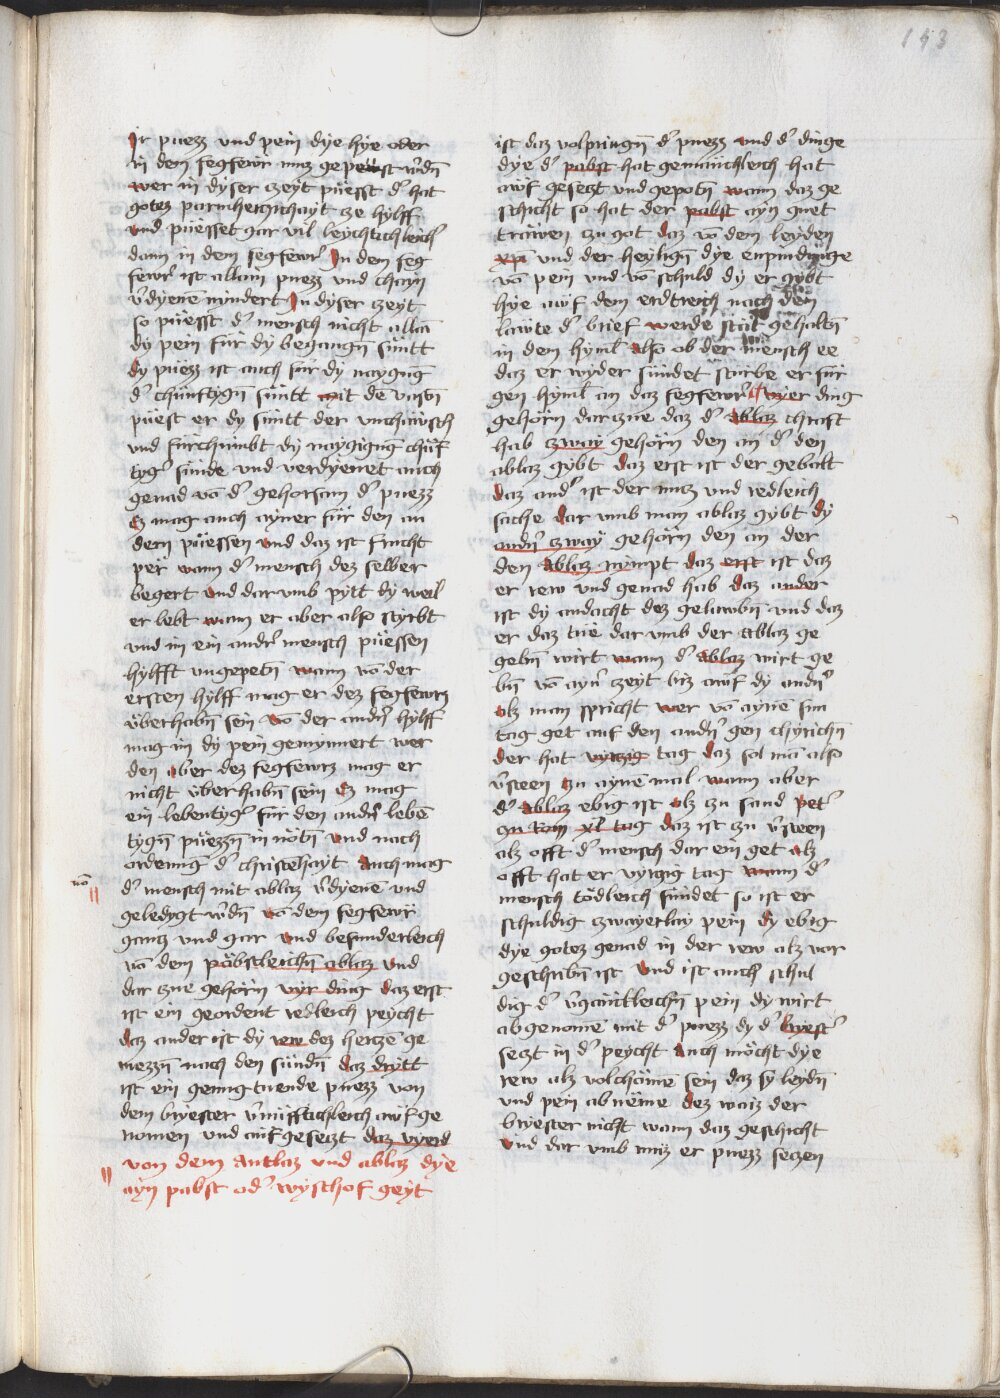 143
Ir puezz vnd pein dye hye oder
in dem fegfewr muz gepeinst w'dn̄
wer in dyser czeyt püesst d' hat
gotez parmherczichayt cze hylff
vnd püesset gar vil leychtichleich'
dann in dem fegfewr' In dem feg
fewr' ist allain puezz vnd chain
v'dyenē nyndert In dyser czeyt
so püesst d' mensch nicht allā
dy pein für dy begangn̄ sünt
dy puezz ist auch für dy naygūg
d' chünftygn̄ sünt mit de vasn̄
püest er dy sünt der vnchäwsch
vnd fürchümbt dy naygigung chüf
tyg' sünde vnd verdyenet auch
genad vō d' gehorsam d' puezz
Ez mag auch ayner für den an
dern püessen vnd daz ist frucht
per wann d' mensch dez selber
begert vnd dar vmb pytt dy weil
er lebt wann er aber also styrbt
vnd in ein andr' mensch püessen
hylfft vngepetn̄ wann vō der
ersten hylff mag er dez fegfewrz
überhabn̄ sein vō der andn̄ hylff
mag im dy pein gemynnert wer
den aber dez fegfewrz mag er
nicht überhabn̄ sein Ez mag
ein lebentyg' für den andn̄ lebē
tygn̄ püezzn̄ in nötn̄ vnd nach
ordenūg d' christēhayt Auch mag
d' mensch mit ablaz v'dyenē vnd
geledygt w'dn̄ vō dem fegfewr
gancz vnd gar vnd besunderleich
vō dem päbstleichn̄ ablaz vnd
dar czue gehörn vyr ding daz erst
ist ein geordent redleich peycht
daz ander ist dy rew dez herczē ge
mezzn̄ nach den sündn̄ daz drytt
ist ein genug tuende puezz von
dem briester v'nüftichleich awf ge
nomen vnd auf gesetzt daz vyerd
von dem Antlaz vnd ablaz dye
ayn pabst od' wyschof geyt
ist daz volpringn̄ d' puezz vnd d' dinge
dye d' pabst hat gemainchleich hat
awf gesetzt vnd gepotn̄ wann daz ge
schicht so hat der pabst ayn guet
trawen czu got daz vō dem leyden
xp̄i vnd der heylign̄ dye enpindunge
vō pein vnd vō schuld dy er gybt
hye awf dem erdtreich nach den
lawte d' brief werde stät gehaltn̄
in dem hyml also ob der mensch ee
daz er wyder sündet stürbe er für
gen hyml an daz fegfewr' vyer ding
gehörn darczue daz d' ablaz chraft
hab czway gehörn den an d' den
ablaz gybt daz erst ist der gebalt
daz and' ist der nucz vnd redleich
sache dar vmb man ablaz gybt dy
andn̄ czway gehörn den an der
den Ablaz nympt daz erst ist daz
er rew vnd genad hab daz ander
ist dy andacht dez gelawbn̄ vnd daz
er daz tue dar vmb der Ablaz ge
gebn̄ wirt wann d' Ablaz wirt ge
bn̄ vō ayn' czeyt biz awf dy andn'
Alz man spricht wer vō aynē sun
tag get auf den andn̄ gen chyrichn̄
der hat vyrczig tag daz sol mā also
v'steen zu aynē mal wann aber
d' Ablaz ebig ist alz zu sand pet'
zu Rom xl tag daz ist zu v'steen
alz offt d' mensch dar ein get alz
offt hat er vyrczig tag wann d'
mensch tödleich sündet so ist er
schuldig czwayerlay pein dy ebig
dye gotez genad in der rew alz vor
geschribn̄ ist vnd ist auch schul
dig d' v'gänkleichn̄ pein dy wirt
abgenomē mit d' puezz dy d' briest'
seczt in d' peycht Auch möcht dye
rew alz volchömē sein daz sy leydn̄
vnd pein abnēme dez waiz der
briester nicht wann daz geschicht
vnd dar vmb muz er puezz seczen